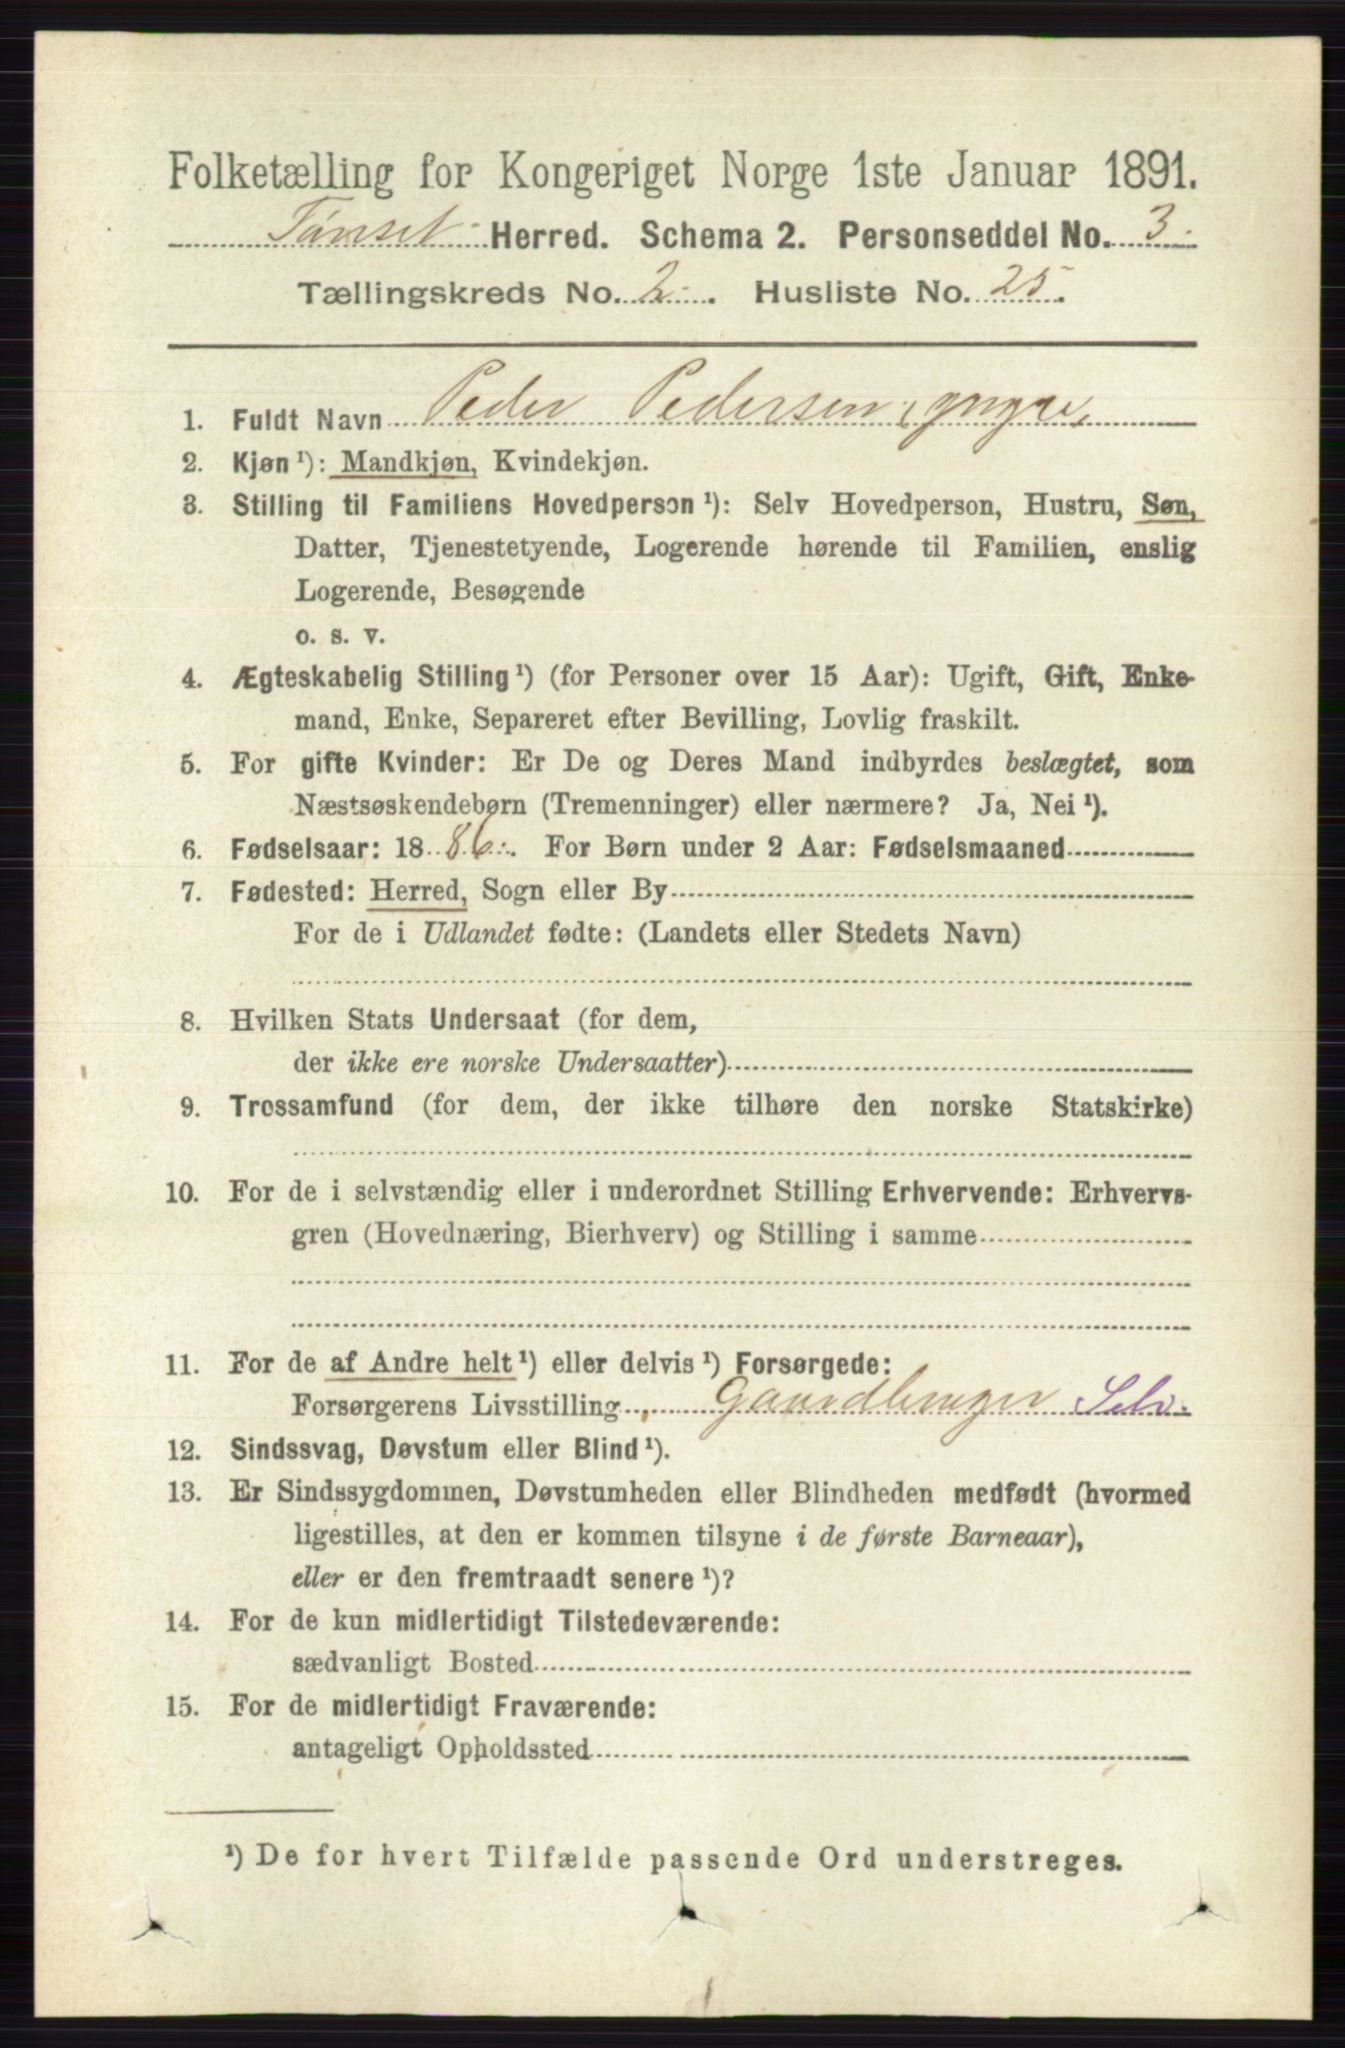 Folketælling for Kongeriget Norge 1ste Januar 1891.
Tønset Herred. Schema 2. Personseddel No. 3
Tællingskreds No. 2. Husliste No. 25.
1. Fuldt Navn Peder Pedersen, yngre,
2. Kjøn ¹): Mandkjøn, Kvindekjøn.
3. Stilling til Familiens Hovedperson ¹): Selv Hovedperson, Hustru, Søn,
Datter, Tjenestetyende, Logerende hørende til Familien, enslig
Logerende, Besøgende
o. s. v.
4. Ægteskabelig Stilling ¹) (for Personer over 15 Aar): Ugift, Gift, Enke-
mand, Enke, Separeret efter Bevilling, Lovlig fraskilt.
5. For gifte Kvinder: Er De og Deres Mand indbyrdes beslægtet, som
Næstsøskendebørn (Tremenninger) eller nærmere? Ja, Nei ¹).
6. Fødselsaar: 1886. For Børn under 2 Aar: Fødselsmaaned
7. Fødested: Herred, Sogn eller By
For de i Udlandet fødte: (Landets eller Stedets Navn)
8. Hvilken Stats Undersaat (for dem,
der ikke ere norske Undersaatter)
9. Trossamfund (for dem, der ikke tilhøre den norske Statskirke)
10. For de i selvstændig eller i underordnet Stilling Erhvervende: Erhvervs-
gren (Hovednæring, Bierhverv) og Stilling i samme
11. For de af Andre helt ¹) eller delvis ¹) Forsørgede:
Forsørgerens Livsstilling Gaardbruger Selv.
12. Sindssvag, Døvstum eller Blind ¹).
13. Er Sindssygdommen, Døvstumheden eller Blindheden medfødt (hvormed
ligestilles, at den er kommen tilsyne i de første Barneaar),
eller er den fremtraadt senere ¹)?
14. For de kun midlertidigt Tilstedeværende:
sædvanligt Bosted
15. For de midlertidigt Fraværende:
antageligt Opholdssted
¹) De for hvert Tilfælde passende Ord understreges.